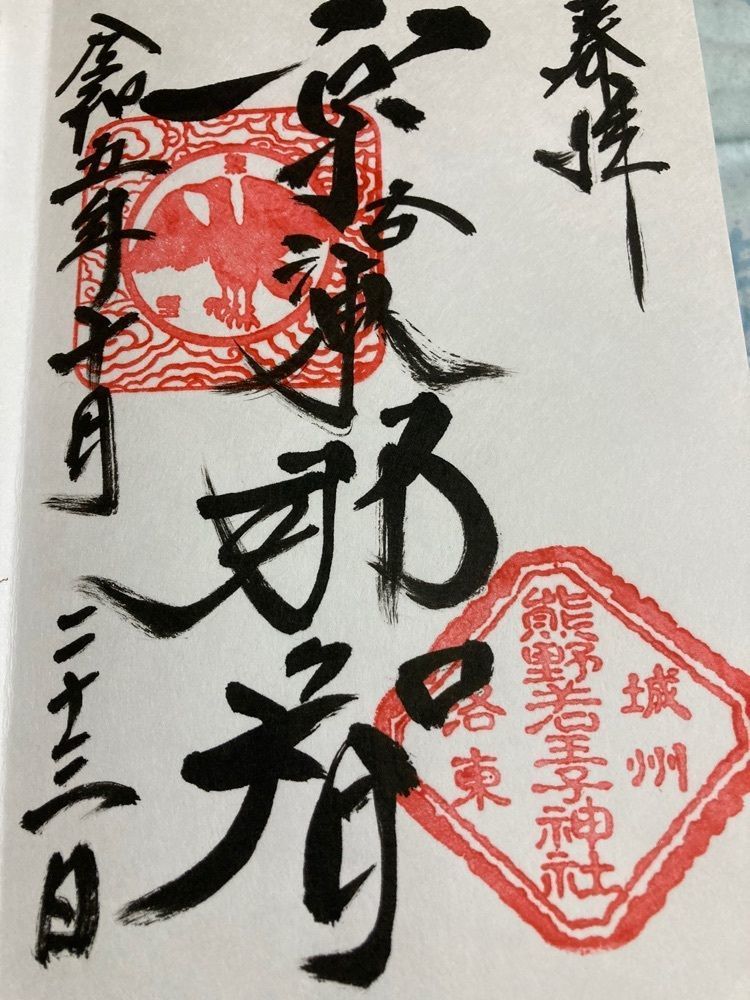 奉拝
京洛東那智
令和五年十月二十三日
城州
熊野若王子神社
洛東